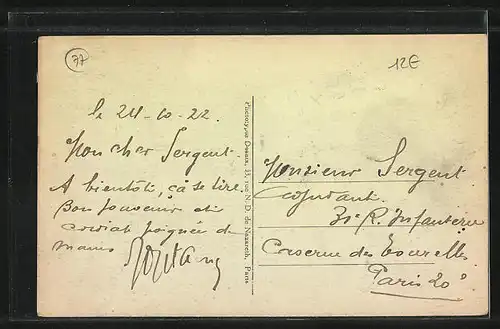 37
12€
le 24-10-22.
Mon cher Sergent.
A bientôt, ça se tire.
Bon souvenir et
cordial poignée de
mains
Phototypie Desaix, 13, rue N. D. de Nazareth, Paris
Monsieur Sergent
Adjudant.
31e R. Infanterie
Caserne des Tourelles
Paris 20e